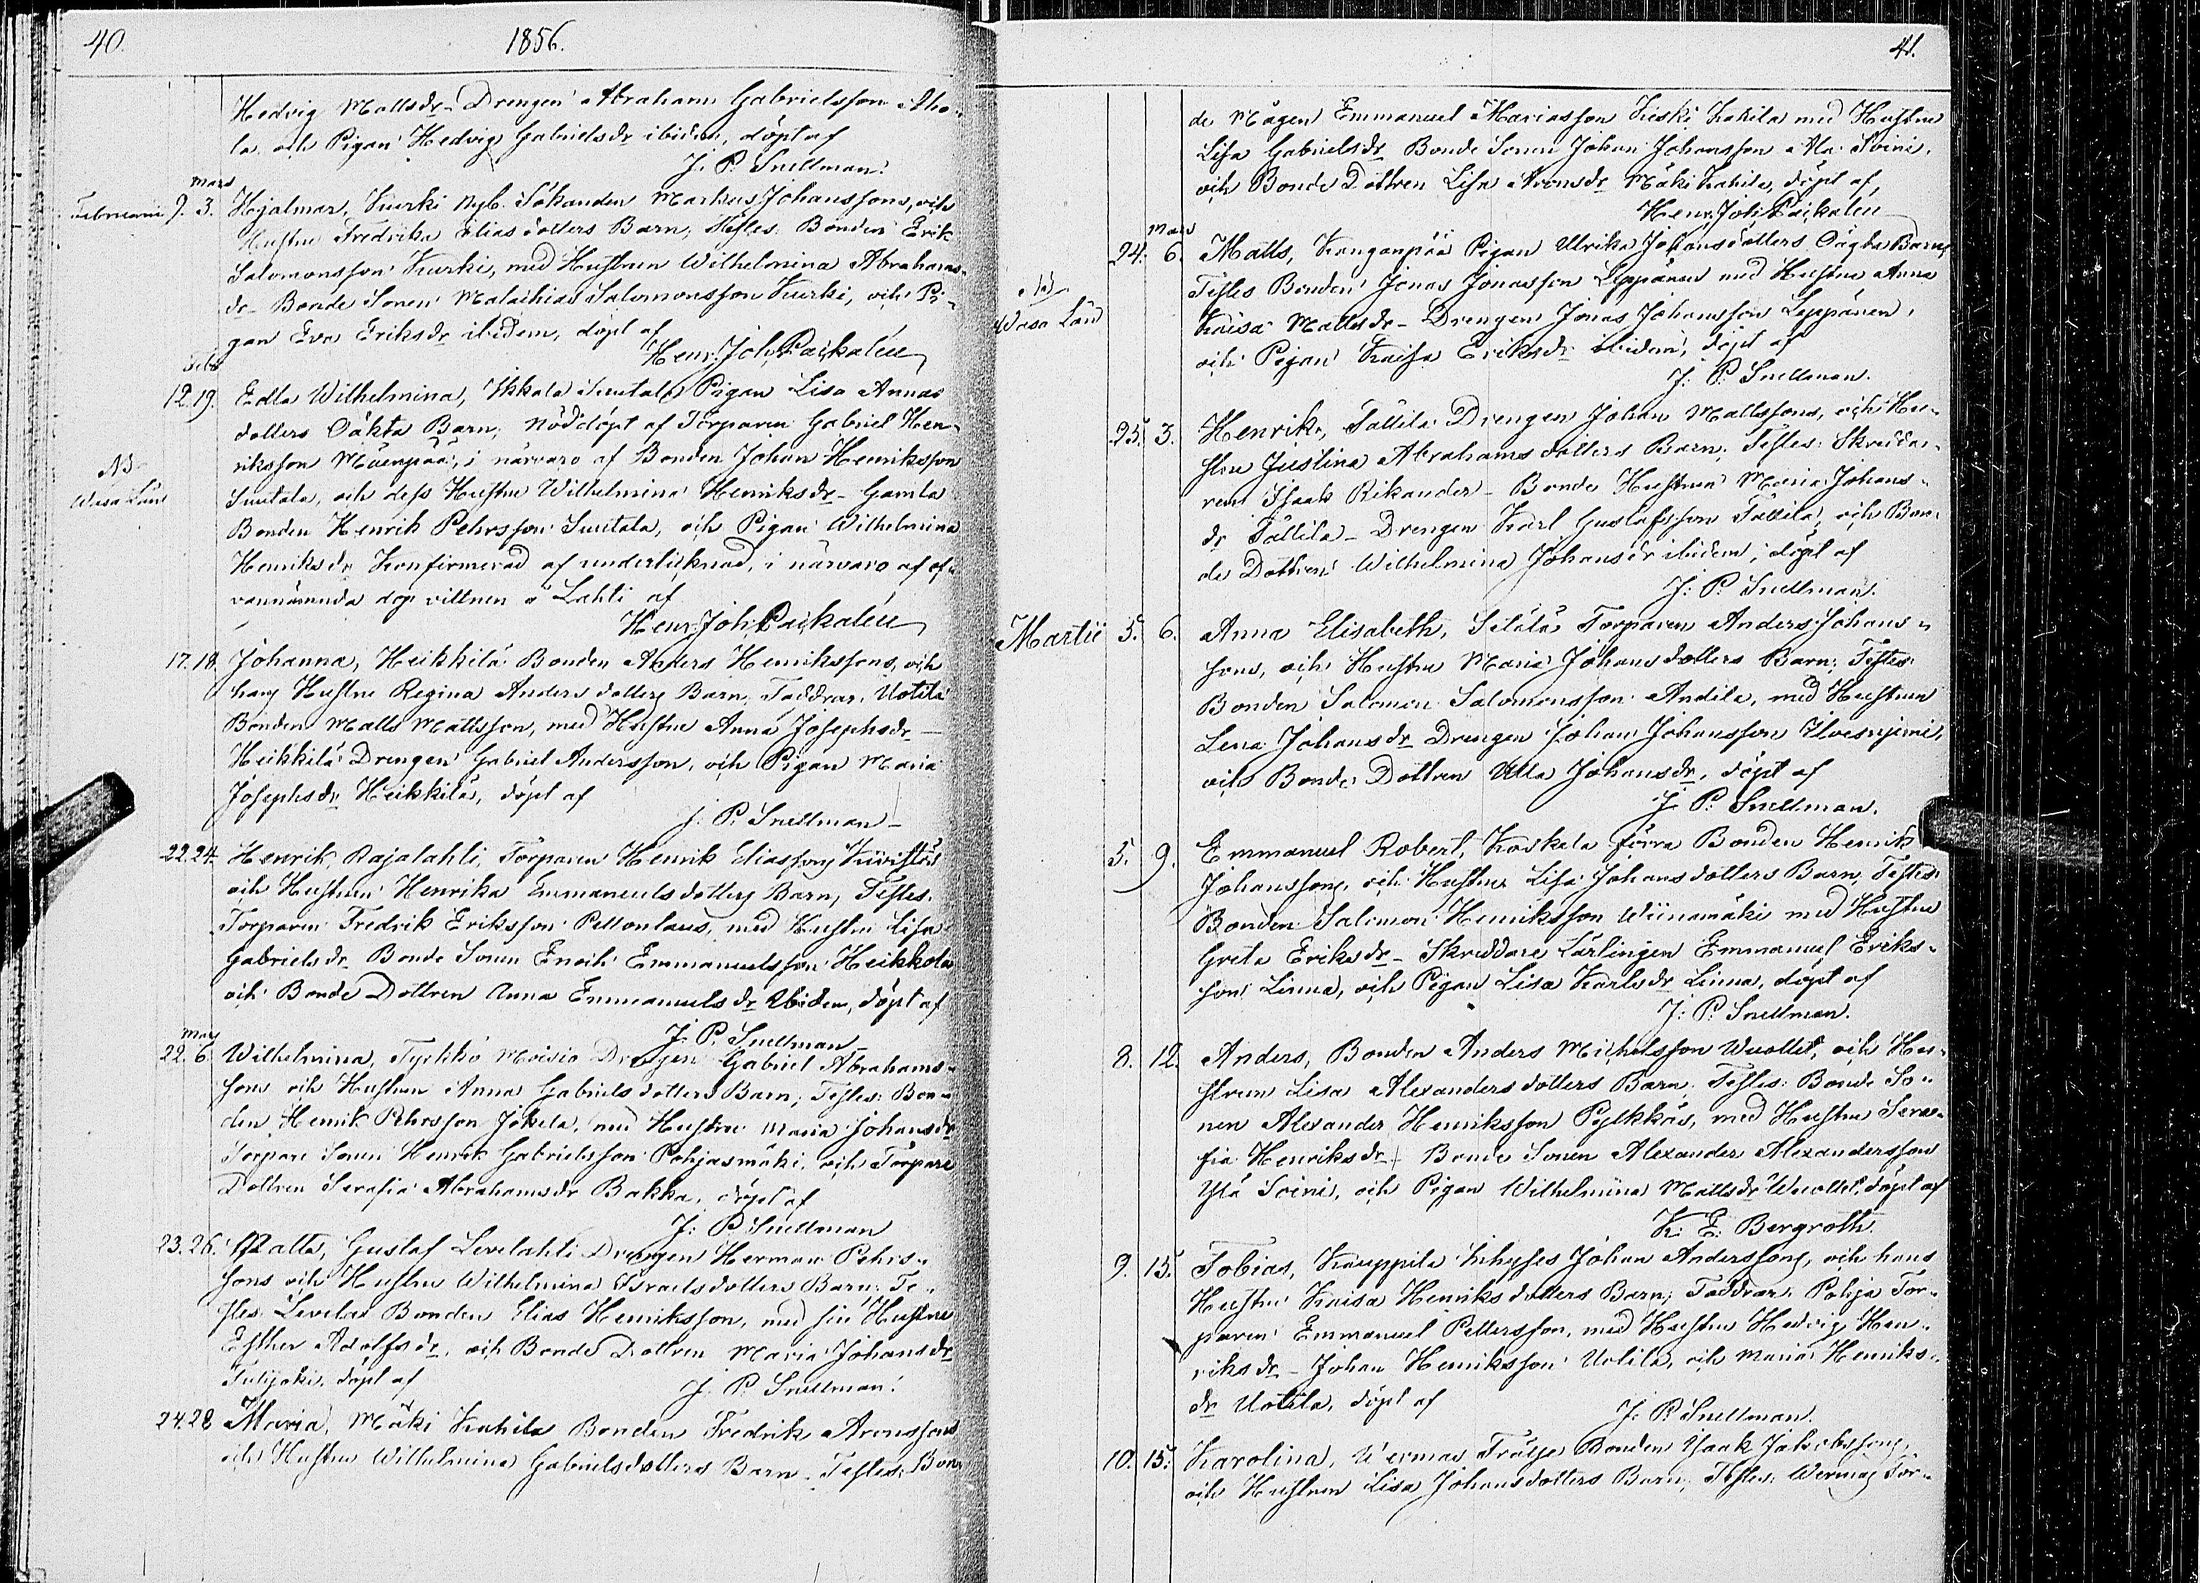 40.
1856.
Hedvig Mattsdr_ Drengen Abraham Gabrielsson Aho-
la och Pigan Hedvig Gabrielsdr ibidem, döpt af
J. P. Snellman.
Mars
Februarii 9. 3. Hjalmar, Kurki Nyb. Sökanden Markus Johanssons, och
Hustru Fredrika Eliasdotters Barn, Testes. Bonden Erik
Salomonsson Kurki, med Hustrun Wilhelmina Abrahams-
dr_ Bonde Sonen Malachias Salomonsson Kurki, och Pi-
gan Eva Eriksdr ibidem, döpt af
Henr. Joh. Paçkalén
Febr
12. 19. Edla Wilhelmina, Ikkala Pigan Lisa Annas
dotters Oäkta Barn, Nöddöpt af Torparen Gabriel Hen-
riksson Mäenpää, i närvaro af Bonden Johan Henriksson
NB
Wasa Län
Suutala, och dess Hustru Wilhelmina Henriksdr_ Gamla
Bonden Henrik Pehrsson Suutala, och Pigan Wilhelmina
Henriksdr Konfirmerad af undertecknad, i närvaro af of-
vannämnda dop vittnen å Lahti af
Henr. Joh. Paçkalén
17. 18. Johanna, Heikkilä Bonden Anders Henrikssons, och
hans Hustru Regina Anders dotters Barn, Faddrar, Uotila
Bonden Matts Mattsson, med Hustru Anna Josephsdr_
Heikkilä Drengen Gabriel Andersson, och Pigan Maria
Josephsdr Heikkilä, döpt af
J. P. Snellman_
22. 24. Henrik, Rajalahti, Torparen Henrik Eliassons Kivistö
och Hustrun Henrika Emmanuelsdotters Barn, Testes.
Torparen Fredrik Eriksson Peltonlaus, med Hustru Lisa
Gabrielsdr_ Bonde Sonen Enoch Emmanuelsson Heikkola
och Bonde Dottren Anna Emmanuelsdr ibidem, döpt af
J. P. Snellman_
Mars
22. 6. Wilhelmina, Tyrkkö Moisio Drengen Gabriel Abrahams-
sons och Hustrun Anna Gabriels dotters Barn; Testes. Bon-
den Henrik Pehrsson Jokela, med Hustru Maria Johansdr
Torpare Sonen Henrik Gabrielsson Pohjasmäki, och Torpare
Dottren Serafia Abrahamsdr Bakka, döpt af
J. P. Snellman
23. 26. Matts, Gustaf Levelahti Drengen Herman Pehrs-
sons och Hustru Wilhelmina Israelsdotters Barn. Te-
stes. Bonden Elias Henriksson, med sin Hustru
Esther Adolfsdr, och Bonde Dottren Maria Johansdr
döpt af
J. P. Snellman.
24. 28 Maria, Mäki Kahila Bonden Fredrik Aronssons
och Hustru Wilhelmina Gabrielsdotters Barn. Testes. Bon-
41.
de Mågen Emmanuel Mariasson Keski Kahila med Hustru
Lisa Gabrielsdr_ Bonde Sonen Johan Johansson Ala Soini,
och Bonde Dottren Lisa Aronsdr Mäki Kahila, döpt af
Henr. Joh. Paçkalén
Mars
24. 6. Matts, Kanganpää Pigan Ulrika Johansdotters Oägta Barn,
NB
Wasa Län
Testes Bonden Jonas Jonasson Leppänen med Hustru Anna
Kaisa Mattsdr_ Drengen Jonas Johansson Leppänen,
och Pigan Kaisa Eriksdr ibidem, döpt af
J. P. Snellman.
25. 3. Henrik, Tallila Drengen Johan Mattssons, och Hu-
stru Justina Abrahams dotters Barn, Testes. Skredda-
ren Isaak Rikander_ Bonde Hustrun Maria Johans-
dr Tallila_ Drengen Karl Gustafsson Tallila, och Bon-
de Dottren Wilhelmina Johansdr ibidem, döpt af
J. P. Snellman.
Martii 5. 6. Anna Elisabeth, Torparen Anders Johans-
sons, och Hustru Maria Johans dotters Barn; Testes.
Bonden Salomon Salomonsson Andila, med Hustrun
Lena Johansdr_ Drengen Johan Johansson Ilvesniemi,
och Bonde Dottren Ulla Johansdr, döpt af
J. P. Snellman.
5. 9. Emmanuel Robert, Koskela förra Bonden Henrik
Johanssons, och Hustrun Lisa Johansdotters Barn, Testes
Bonden Salomon Henriksson Wiinamäki med Hustru
Greta Eriksdr_ Skreddare Lärlingen Emmanuel Eriks-
son Linna, och Pigan Lisa Karlsdr Linna, döpt af
J. P. Snellman.
8. 12. Anders, Bonden Anders Michelsson och Hu-
strun Lisa Alexandersdotters Barn. Testes. Bonde So-
nen Alexander Henriksson Pylkkäs, med Hustru Sera-
fia Henriksdr_ Bonde Sonen Alexander Alexandersson
Ylä Soini, och Pigan Wilhelmina Mattsdr döpt af
K. E. Bergroth.
9. 15. Tobias, Kauppila Inhyses Johan Anderssons, och hans
Hustru Kaisa Henriksdotters Barn; Faddrar. Pohja Tor-
paren Emmanuel Pettersson, med Hustru Hedvig Hen-
riksdr_ Johan Henriksson Uotila, och Maria Henriks-
dr Uotila, döpt af
J. P. Snellman.
10. 15. Karolina, Wermas Frälse Bonden Isaak Jakobssons,
och Hustrun Lisa Johansdotters Barn, Testes. Wermas Tor-